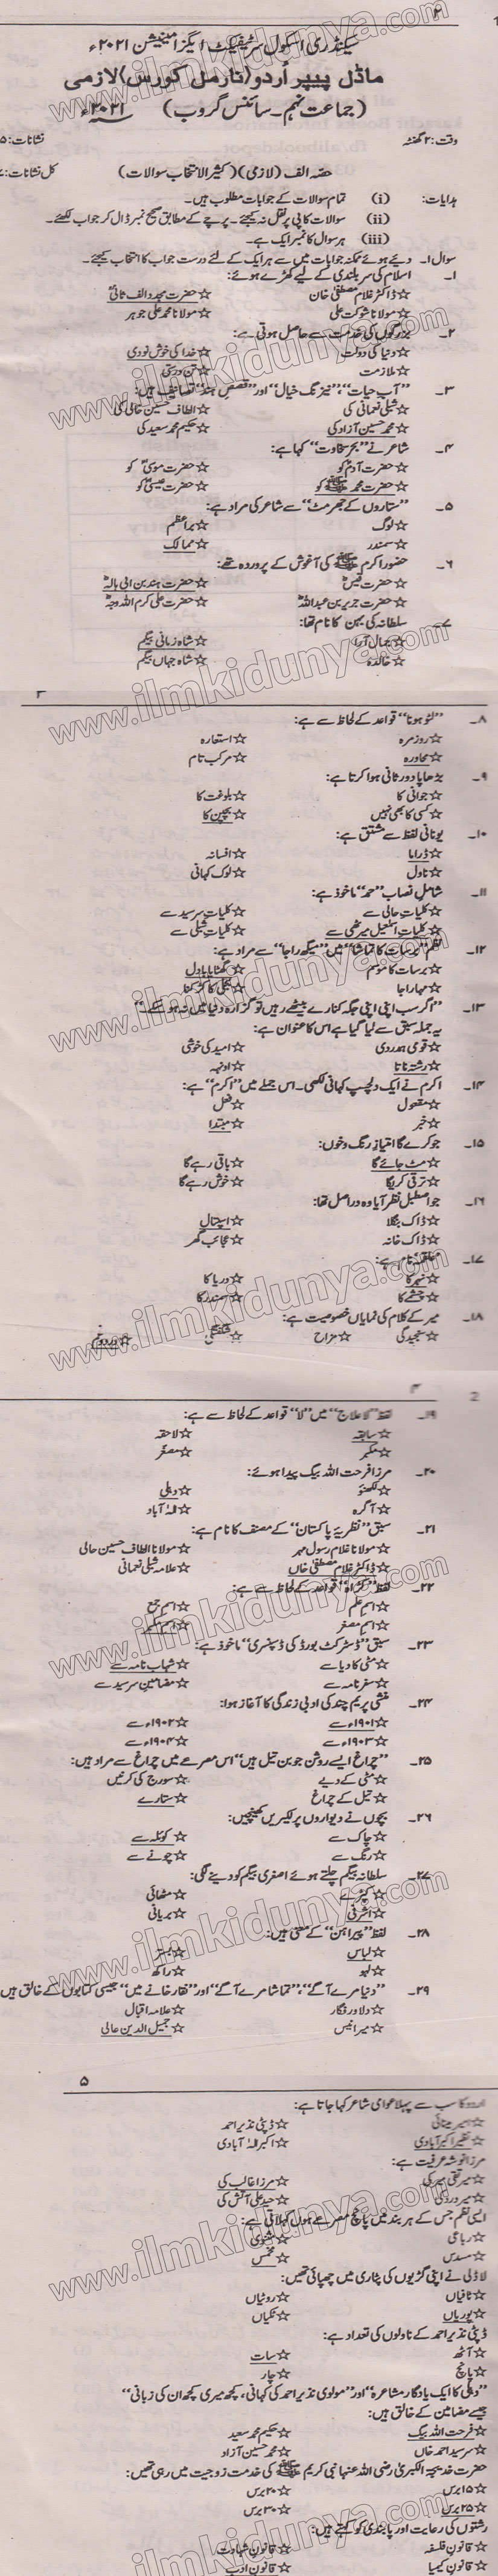 ۲
سیکنڈری اسکول سرٹیفکیٹ ایگزامینیشن ۲۰۲۱ء
ماڈل پیپر اُردو (نارمل کورس) لازمی
(جماعت نہم۔ سائنس گروپ) ۲۰۲۱ء
وقت: ۲ گھنٹہ
حصہ الف (لازمی) (کثیر الانتخاب سوالات) کل نشانات:
ہدایات: (i) تمام سوالات کے جوابات مطلوب ہیں۔
(ii) سوالات کاپی پر نقل نہ کیجئے۔ پرچے کے مطابق صحیح نمبر ڈال کر جواب لکھئے۔
(iii) ہر سوال کا نمبر ایک ہے۔
سوال۱۔ دیئے ہوئے ممکنہ جوابات میں سے ہر ایک کے لئے درست جواب کا انتخاب کیجئے۔
۱۔ اسلام کی سربلندی کے لیے کھڑے ہوئے:
☆ ڈاکٹر غلام مصطفیٰ خان ☆ حضرت مجدد الف ثانیؒ
☆ مولانا شوکت علی ☆ مولانا محمد علی جوہر
۲۔ بزرگوں کی خدمت سے حاصل ہوتی ہے:
☆ دنیا کی دولت ☆ خدا کی خوش نودی
☆ ملازمت ☆ تن درستی
۳۔ ’’آبِ حیات‘‘، ’’نیرنگ خیال‘‘ اور ’’قصصِ ہند‘‘ تصانیف ہیں:
☆ شبلی نعمانی کی ☆ الطاف حسین حالی کی
☆ محمد حسین آزاد کی ☆ حکیم محمد سعید کی
۴۔ شاعر نے ’’بحرِ سخاوت‘‘ کہا ہے:
☆ حضرت آدمؑ کو ☆ حضرت موسیٰؑ کو
☆ حضرت محمد ﷺ کو ☆ حضرت عیسیٰؑ کو
۵۔ ’’ستاروں کے جھرمٹ‘‘ سے شاعر کی مراد ہے:
☆ لوگ ☆ براعظم
☆ سمندر ☆ ممالک
۶۔ حضور اکرم ﷺ کی آغوش کے پروردہ تھے:
☆ حضرت قیسؓ ☆ حضرت ہند بن ابی ہالہؓ
☆ حضرت جریر بن عبداللہؓ ☆ حضرت علی کرم اللہ وجہہ
۷۔ سلطانہ کی بہن کا نام تھا:
☆ جمال آرا ☆ شاہ زمانی بیگم
☆ خالدہ ☆ شاہ جہاں بیگم
۳
۸۔ ’’لٹو ہونا‘‘ قواعد کے لحاظ سے ہے:
☆ روزمرہ ☆ استعارہ
☆ محاورہ ☆ مرکب تام
۹۔ بڑھاپا دورِ ثانی ہوا کرتا ہے:
☆ جوانی کا ☆ بلوغت کا
☆ کسی کا بھی نہیں ☆ بچپن کا
۱۰۔ یونانی لفظ سے مشتق ہے:
☆ ڈراما ☆ افسانہ
☆ ناول ☆ لوک کہانی
۱۱۔ شاملِ نصاب ’’حمد‘‘ ماخوذ ہے:
☆ کلیاتِ حالی سے ☆ کلیاتِ سرسید سے
☆ کلیاتِ اسمٰعیل میرٹھی سے ☆ کلیاتِ شبلی سے
۱۲۔ نظم ’’برسات کا تماشا‘‘ میں ’’میگھ راجا‘‘ سے مراد ہے:
☆ برسات کا موسم ☆ گھٹا یا بادل
☆ مہاراجا ☆ بجلی کا کڑکنا
۱۳۔ ’’اگر سب اپنی اپنی جگہ کنارے بیٹھے رہیں تو گزارہ دنیا میں نہ ہو سکے۔‘‘
یہ جملہ سبق سے لیا گیا ہے اس کا عنوان ہے:
☆ قومی ہمدردی ☆ امید کی خوشی
☆ رشتہ ناتا ☆ اونہہ
۱۴۔ اکرم نے ایک دلچسپ کہانی لکھی۔ اس جملے میں ’’اکرم‘‘ ہے:
☆ مفعول ☆ فعل
☆ خبر ☆ مبتدا
۱۵۔ جو کرے گا امتیازِ رنگ و خوں:
☆ مٹ جائے گا ☆ باقی رہے گا
☆ ترقی کریگا ☆ خوش رہے گا
۱۶۔ جو اصطبل نظر آیا وہ دراصل تھا:
☆ ڈاک بنگلا ☆ اسپتال
☆ ڈاک خانہ ☆ عجائب گھر
۱۷۔ نام ہے:
☆ نہر کا ☆ دریا کا
☆ چشمے کا ☆ سمندر کا
۱۸۔ میر کے کلام کی نمایاں خصوصیت ہے:
☆ سنجیدگی ☆ مزاح ☆ شگفتگی ☆ درد و غم
۴
۱۹۔ لفظ ’’لاعلاج‘‘ میں ’’لا‘‘ قواعد کے لحاظ سے ہے:
☆ سابقہ ☆ لاحقہ
☆ مکبر ☆ مصغر
۲۰۔ مرزا فرحت اللہ بیگ پیدا ہوئے:
☆ لکھنؤ ☆ دہلی
☆ آگرہ ☆ الٰہ آباد
۲۱۔ سبق ’’نظریۂ پاکستان‘‘ کے مصنف کا نام ہے:
☆ مولانا غلام رسول مہر ☆ مولانا الطاف حسین حالی
☆ ڈاکٹر غلام مصطفیٰ خاں ☆ علامہ شبلی نعمانی
۲۲۔ لفظ ’’کڑاہ‘‘ قواعد کے لحاظ سے ہے:
☆ اسمِ علم ☆ اسمِ جمع
☆ اسمِ مصغر ☆ اسمِ مکبر
۲۳۔ سبق ’’ڈسٹرکٹ بورڈ کی ڈسپنسری‘‘ ماخوذ ہے:
☆ مٹی کا دیا سے ☆ شہاب نامہ سے
☆ سفرنامہ سے ☆ مضامینِ سرسید سے
۲۴۔ منشی پریم چند کی ادبی زندگی کا آغاز ہوا:
☆ ۱۹۰۱ء سے ☆ ۱۹۰۲ء سے
☆ ۱۹۰۳ء سے ☆ ۱۹۰۴ء سے
۲۵۔ ’’چراغ ایسے روشن جو بن تیل ہیں‘‘ اس مصرعے میں چراغ سے مراد ہیں:
☆ مٹی کے دیے ☆ سورج کی کرنیں
☆ تیل کے چراغ ☆ ستارے
۲۶۔ بچوں نے دیواروں پر لکیریں کھینچیں:
☆ چاک سے ☆ کوئلہ سے
☆ رنگ سے ☆ چونے سے
۲۷۔ سلطانہ بیگم چلتے ہوئے اصغری بیگم کو دینے لگی:
☆ کپڑے ☆ مٹھائی
☆ اشرفی ☆ بریانی
۲۸۔ لفظ ’’پیراہن‘‘ کے معنی ہیں:
☆ لباس ☆ بستر
☆ لہو ☆ راکھ
۲۹۔ ’’دنیا مرے آگے‘‘، ’’تماشا مرے آگے‘‘ اور ’’نقار خانے میں‘‘ جیسی کتابوں کے خالق ہیں
☆ دلاور فگار ☆ علامہ اقبال
☆ میر انیس ☆ جمیل الدین عالی
۵
اردو کا سب سے پہلا عوامی شاعر کہا جاتا ہے:
☆ امیر مینائی ☆ ڈپٹی نذیر احمد
☆ نظیر اکبر آبادی ☆ اکبر الٰہ آبادی
مرزا نوشہ عرفیت ہے:
☆ میر تقی میر کی ☆ مرزا غالب کی
☆ میر درد کی ☆ حیدر علی آتش کی
ایسی نظم جس کے ہر بند میں پانچ مصرعے ہوں کہلاتی ہے:
☆ رباعی ☆ مثنوی
☆ مسدس ☆ مخمس
لاڈلی نے اپنی گڑیوں کی پٹاری میں چھپائی تھیں:
☆ ٹافیاں ☆ روٹیاں
☆ پوریاں ☆ ٹکیاں
ڈپٹی نذیر احمد کے ناولوں کی تعداد ہے:
☆ آٹھ ☆ سات
☆ پانچ ☆ چار
’’دہلی کا ایک یادگار مشاعرہ‘‘ اور ’’مولوی نذیر احمد کی کہانی، کچھ میری کچھ ان کی زبانی‘‘
جیسے مضامین کے خالق ہیں:
☆ فرحت اللہ بیگ ☆ حکیم محمد سعید
☆ سرسید احمد خاں ☆ محمد حسین آزاد
حضرت خدیجۃ الکبریٰ رضی اللہ عنہا نبی کریم ﷺ کی خدمت زوجیت میں رہی تھیں:
☆ ۱۵ برس ☆ ۲۰ برس
☆ ۲۵ برس ☆ ۳۰ برس
رشتوں کی رعایت اور پابندی کو کہتے ہیں:
☆ قانونِ فلسفہ ☆ قانونِ شہادت
☆ قانونِ کیمیا ☆ قانونِ ادب
www.ilmkidunya.com